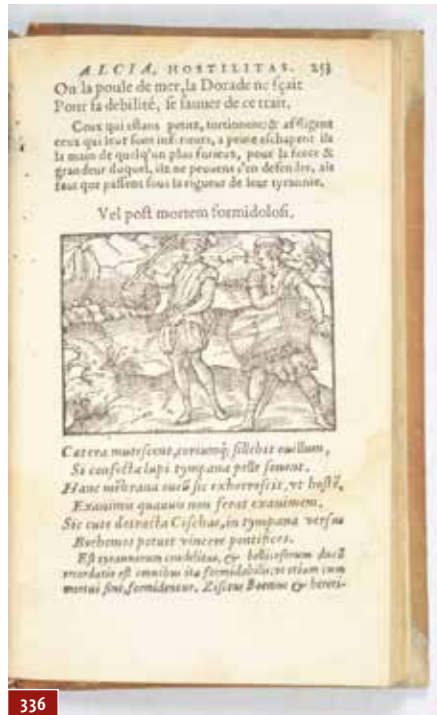 ALCIA, HOSTILITAS. 253
Ou la poule de mer, la Dorade ne sçait
Pour sa debilité, se sauuer de ce trait.
Ceux qui estans petits, tortionent & affligent
ceux qui leur sont inferieurs, a peine eschapent ils
la main de quelqu'un plus furieux, pour la force &
grandeur duquel, ils ne peuuent s'en defendre, ains
faut que passent sous la rigueur de leur tyrannie.
Vel post mortem formidolosi.
Cætera mutescent, coriumq; silebit ouillum,
Si confecta lupi tympana pelle sonent.
Hanc mẽbrana ouiũ sic exhorrescit, vt hostẽ,
Exanimis quamuis non ferat exanimem.
Sic cute detracta Cischas, in tympana versus
Boëmos potuit vincere pontifices.
Est tyrannorum crudelitas, & bellicosorum ducũ
recordatio est omnibus ita formidabilis, vt etiam cum
mortui sint, formidentur. Ziscas Boemus & hereti-
336